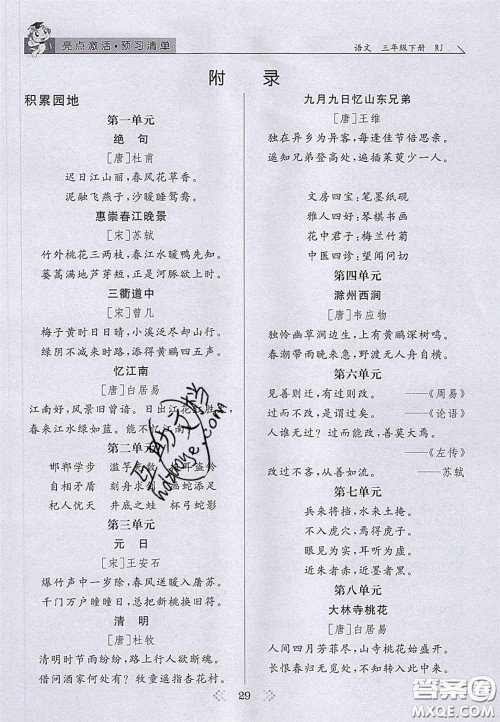 亮点激活·预习清单
语文 三年级下册 RJ
附 录
积累园地
第一单元
绝 句
[唐]杜甫
迟日江山丽，春风花草香。
泥融飞燕子，沙暖睡鸳鸯。
惠崇春江晚景
[宋]苏轼
竹外桃花三两枝，春江水暖鸭先知。
蒌蒿满地芦芽短，正是河豚欲上时。
三衢道中
[宋]曾几
梅子黄时日日晴，小溪泛尽却山行。
绿阴不减来时路，添得黄鹂四五声。
忆江南
[唐]白居易
江南好，风景旧曾谙。日出江花红胜
春来江水绿如蓝。能不忆江南
第二单元
邯郸学步 滥竽充数 耳盗铃
自相矛盾 刻舟求剑 蛇添足
杞人忧天 井底之蛙 杯弓蛇影
第三单元
元 日
[宋]王安石
爆竹声中一岁除，春风送暖入屠苏。
千门万户曈曈日，总把新桃换旧符。
清 明
[唐]杜牧
清明时节雨纷纷，路上行人欲断魂。
借问酒家何处有？牧童遥指杏花村。
九月九日忆山东兄弟
[唐]王维
独在异乡为异客，每逢佳节倍思亲。
遥知兄弟登高处，遍插茱萸少一人。
文房四宝：笔墨纸砚
雅人四好：琴棋书画
花中君子：梅兰竹菊
中医四诊：望闻问切
第四单元
滁州西涧
[唐]韦应物
独怜幽草涧边生，上有黄鹂深树鸣。
春潮带雨晚来急，野渡无人舟自横。
第六单元
见善则迁，有过则改。 ——《周易》
过而不改，是谓过矣。 ——《论语》
人谁无过？过而能改，善莫大焉。
——《左传》
改过不吝，从善如流。 ——苏轼
第七单元
兵来将挡，水来土掩。
不入虎穴，焉得虎子。
眼见为实，耳听为虚。
近朱者赤，近墨者黑。
第八单元
大林寺桃花
[唐]白居易
人间四月芳菲尽，山寺桃花始盛开。
长恨春归无觅处，不知转入此中来。
29
互助文档
hdzuoye.com
答案圈
MXQE.COM